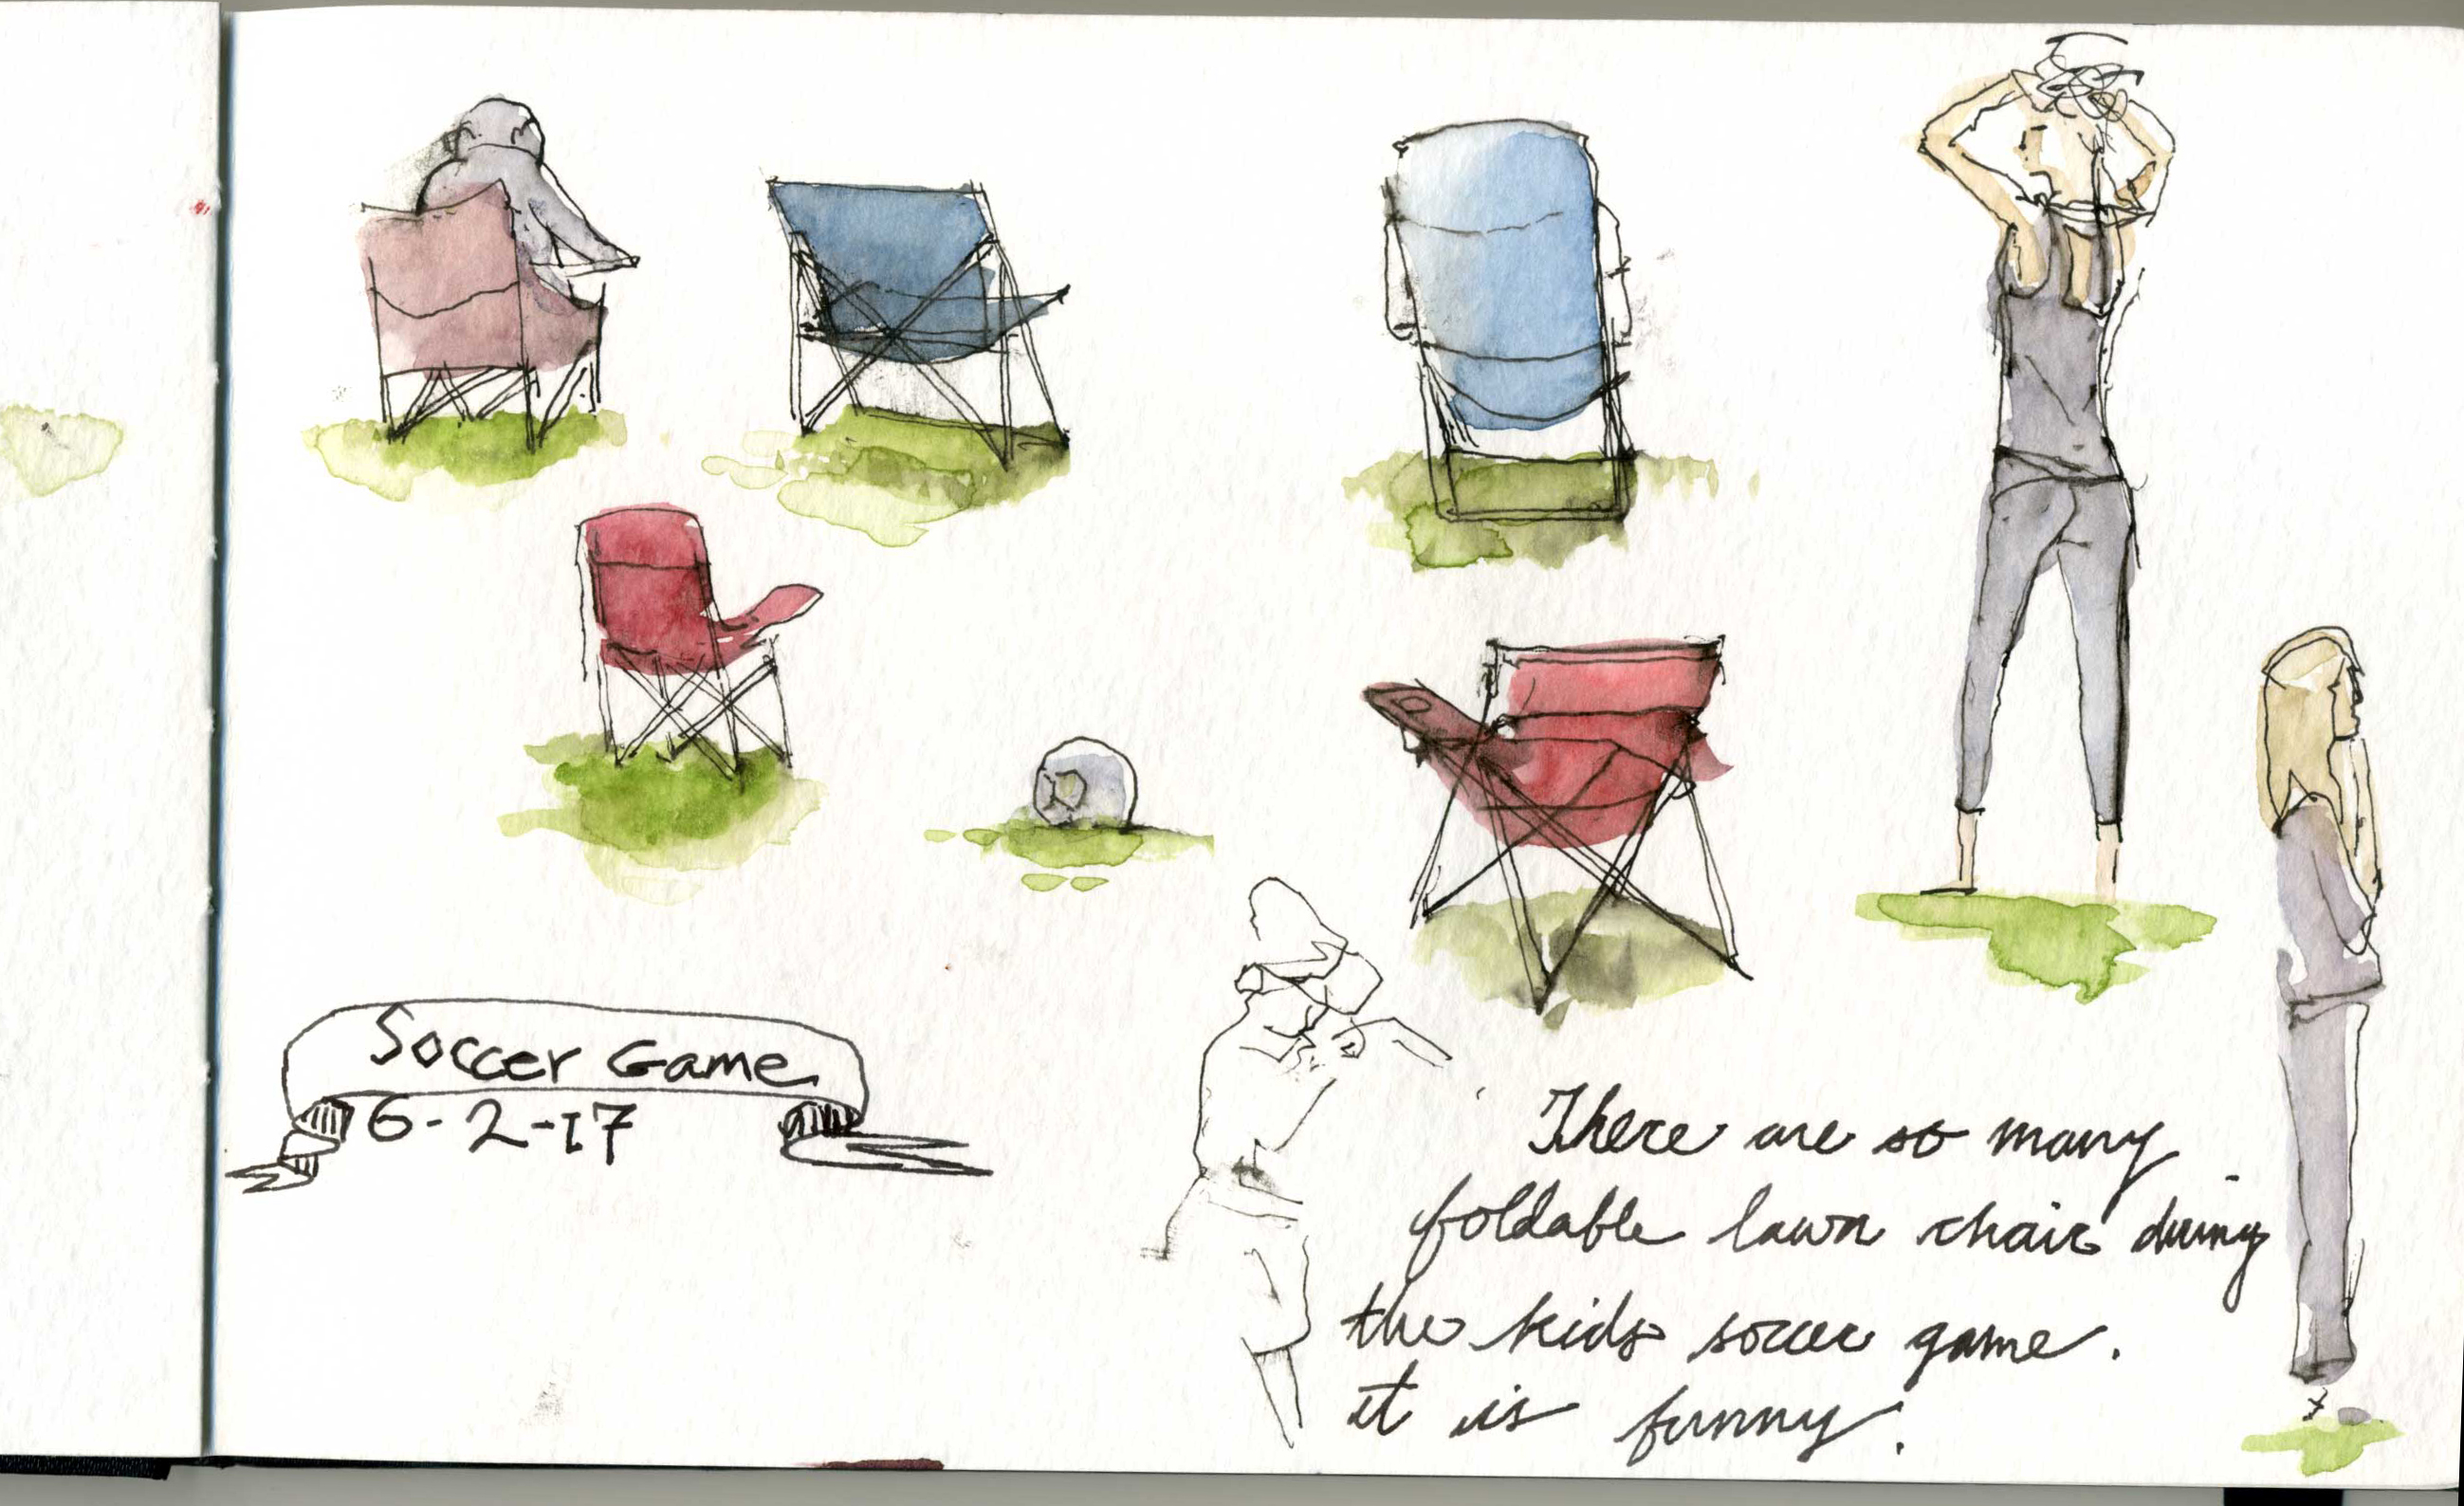 Soccer Game
6-2-17
There are so many
foldable lawn chair during
the kids soccer game.
it is funny.